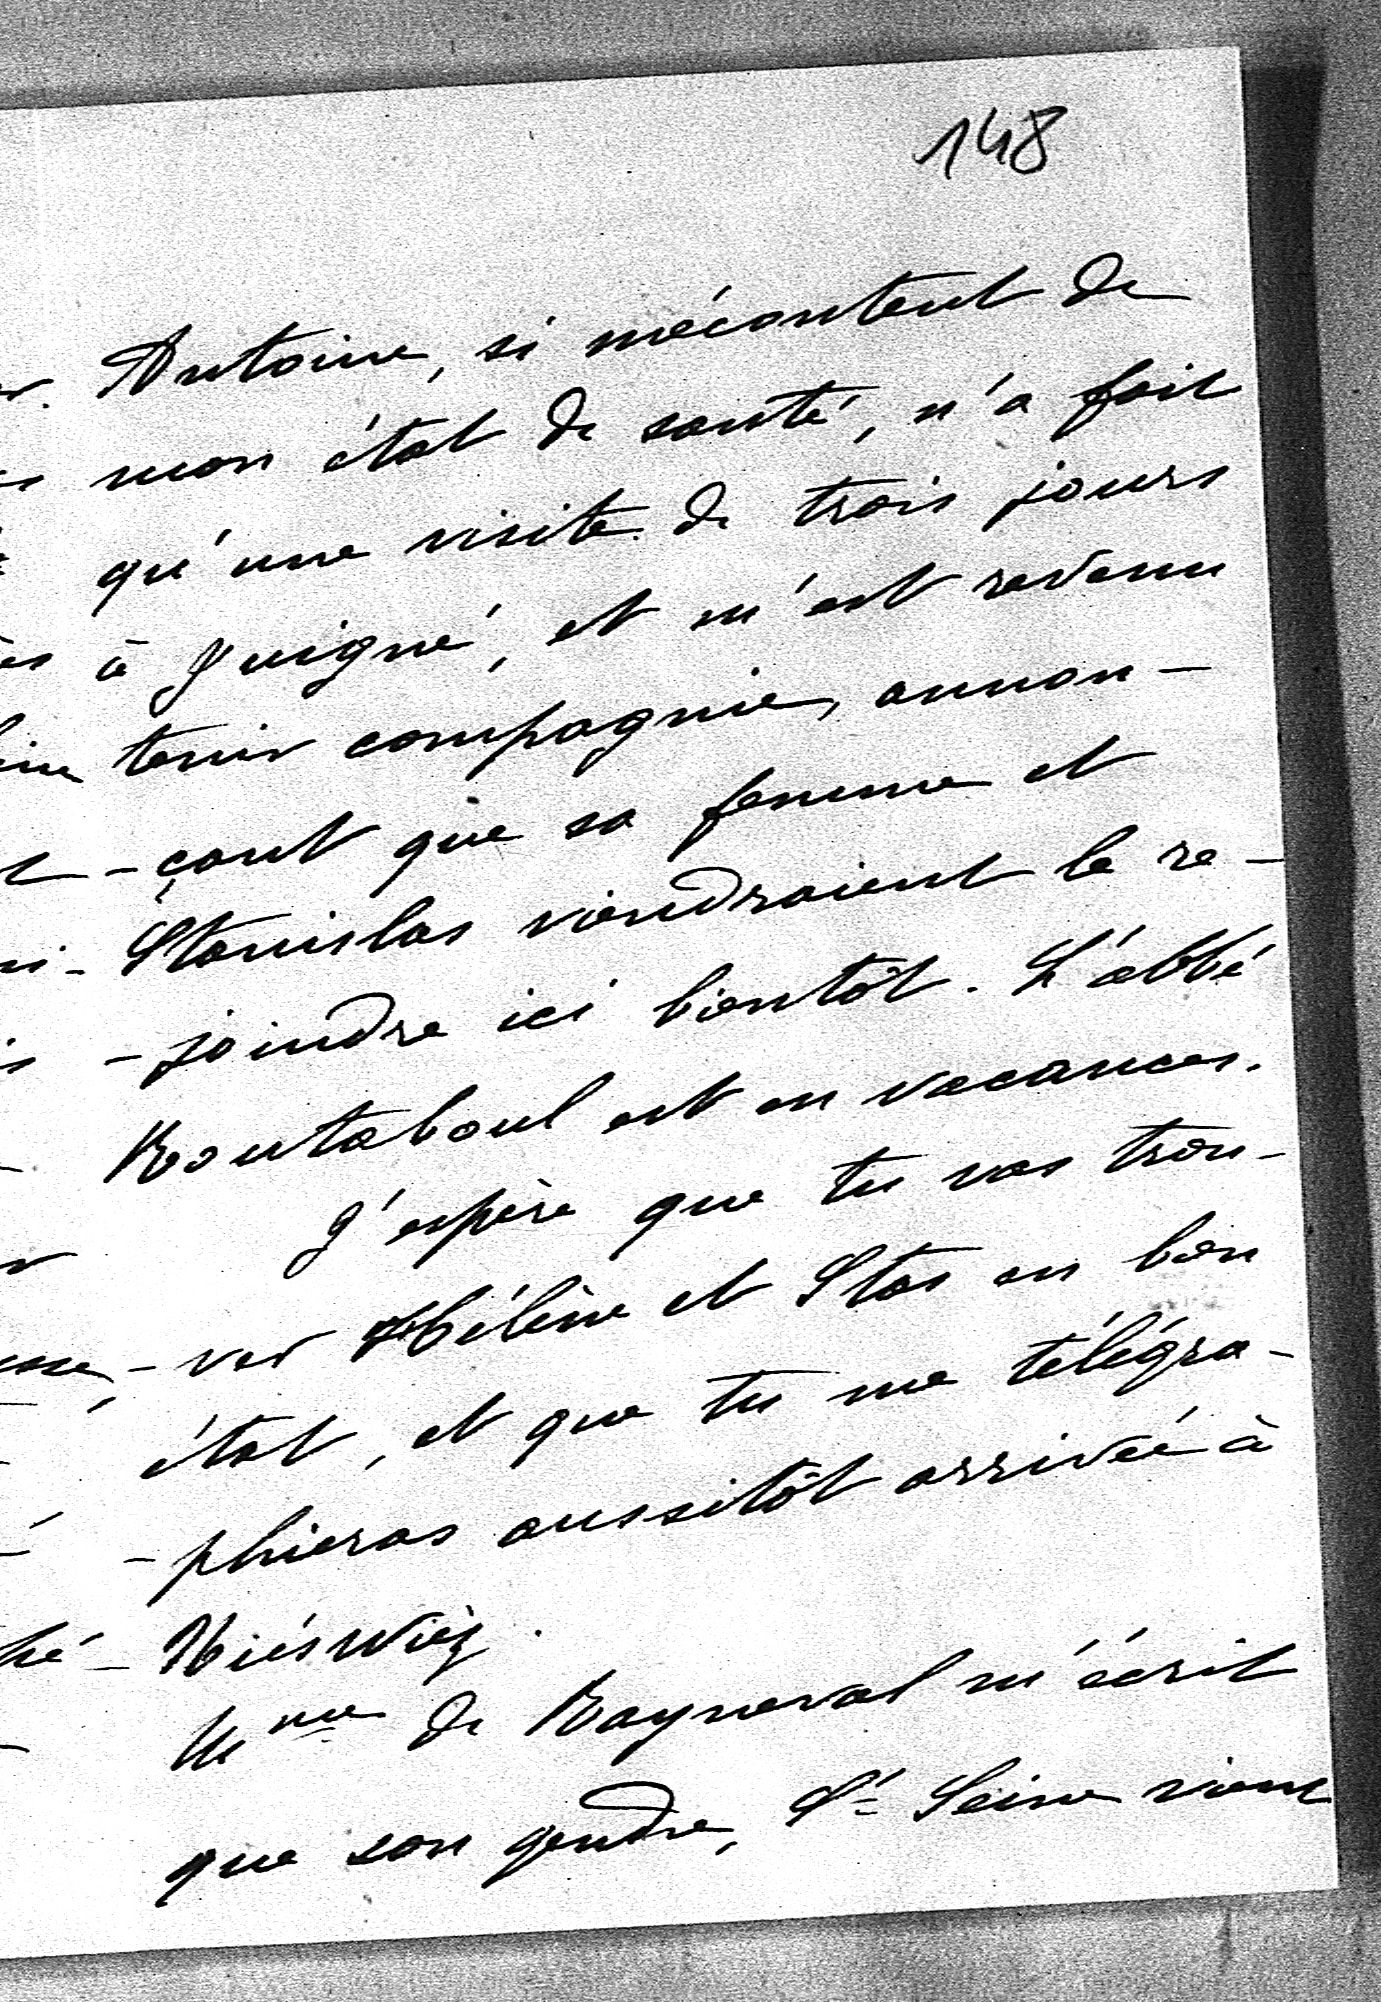 148
Antoine, si mécontent de
mon état de santé, n'a fait
qu'une visite de trois jours
à Juigné, et m'est revenu
tenir compagnie, annon-
-çant que sa femme et
Stanislas viendraient le re-
-joindre ici bientôt. L'abbé
Boutaboul est en vacances.
J'espère que tu vas trou-
-ver Hélène et Stas en bon
état, et que tu me télégra-
-phieras aussitôt arrivée à
Niéswiéz.
Mme de Rayneval m'écrit
que son gendre, St Seine vient